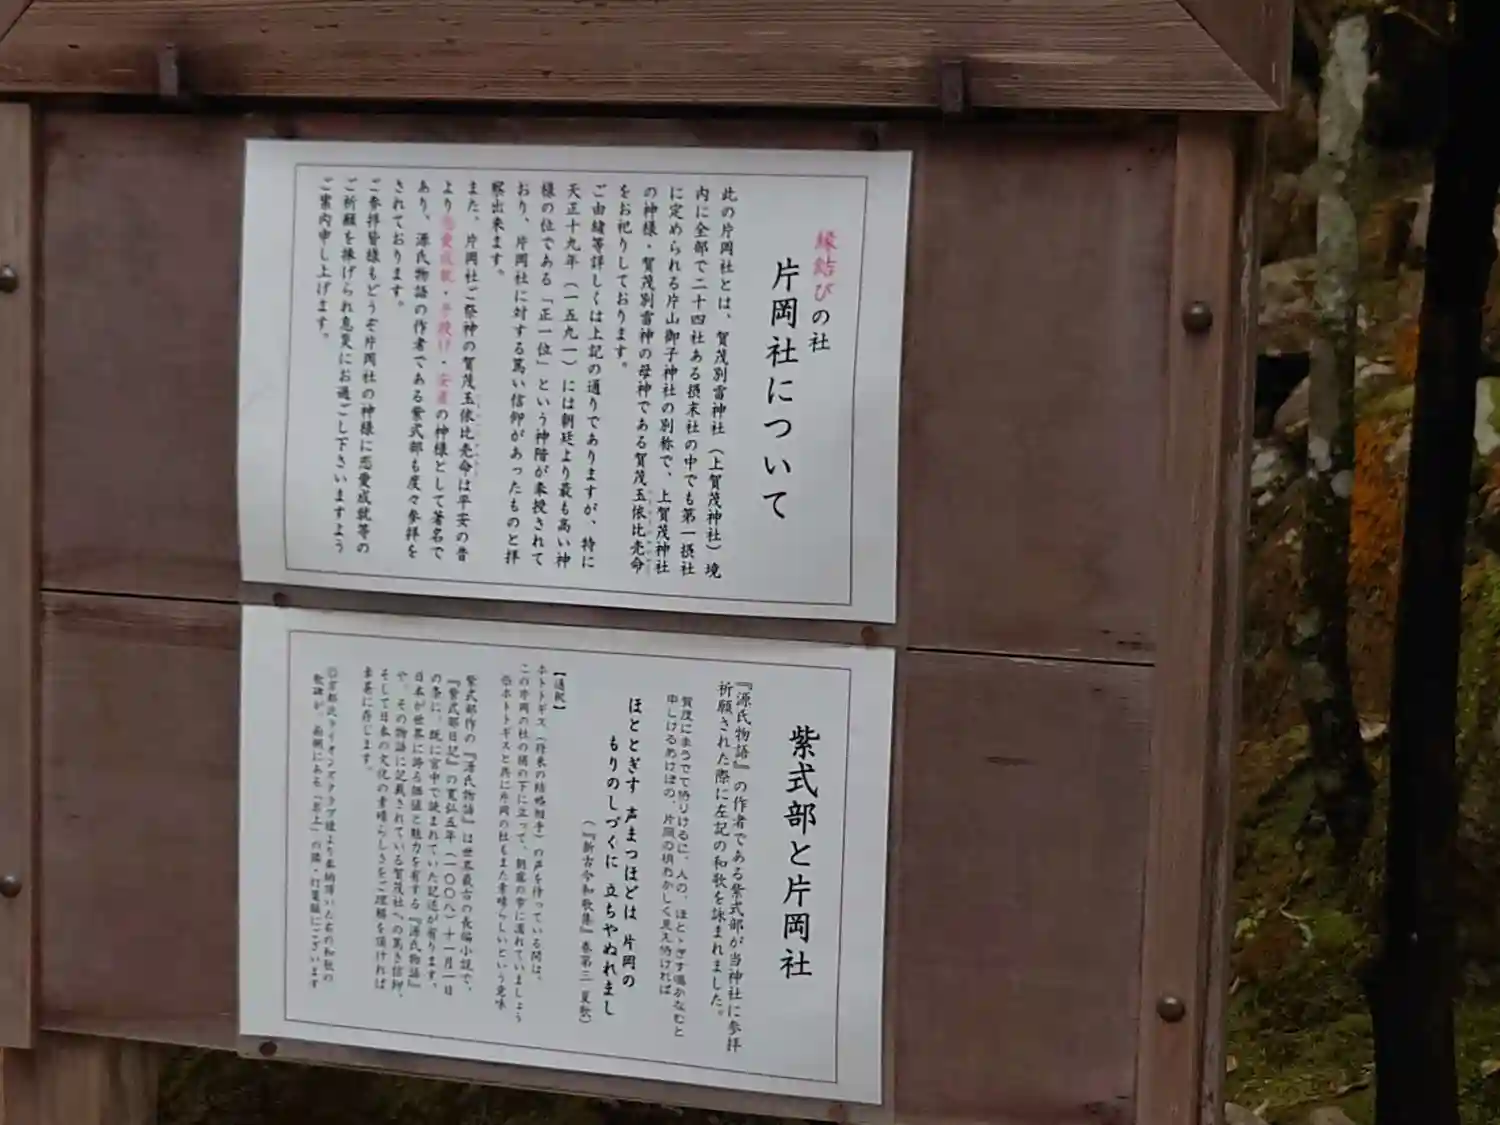 縁結びの社
片岡社について
此の片岡社とは、賀茂別雷神社（上賀茂神社）境
内に全部で二十四社ある摂末社の中でも第一摂社
に定められる片山御子神社の別称で、上賀茂神社
の神様・賀茂別雷神の母神である賀茂玉依比売命
をお祀りしております。
ご由緒等詳しくは上記の通りでありますが、特に
天正十九年（一五九一）には朝廷より最も高い神
様の位である「正一位」という神階が奉授されて
おり、片岡社に対する篤い信仰があったものと拝
察出来ます。
また、片岡社ご祭神の賀茂玉依比売命は平安の昔
より恋愛成就・子授け・安産の神様として著名で
あり、源氏物語の作者である紫式部も度々参拝を
されております。
ご参拝皆様もどうぞ片岡社の神様に恋愛成就等の
ご祈願を捧げられ息災にお過ごし下さいますよう
ご案内申し上げます。
紫式部と片岡社
『源氏物語』の作者である紫式部が当神社に参拝
祈願された際に左記の和歌を詠まれました。
賀茂にまうでて侍りけるに、人の、ほとゝぎす鳴かなむと
申しけるあけぼの、片岡の梢をかしく見え侍ければ
ほととぎす 声まつほどは 片岡の
もりのしづくに 立ちやぬれまし
（『新古今和歌集』巻第三 夏歌）
【通釈】
ホトトギス（将来の結婚相手）の声を待っている間は、
この片岡の社の梢の下に立って、朝露の雫に濡れていましょう
※ホトトギスと共に片岡の社もまた素晴らしいという意味
紫式部作の『源氏物語』は世界最古の長編小説で、
『紫式部日記』の寛弘五年（一〇〇八）十一月一日
の条に、既に宮中で読まれていた記述が有ります。
日本が世界に誇る価値と魅力を有する『源氏物語』
や、その物語に記載されている賀茂社への篤き信仰、
そして日本の文化の素晴らしさをご理解を頂ければ
幸甚に存じます。
京都北ライオンズクラブ様より奉納頂いた右の和歌の
歌碑が、